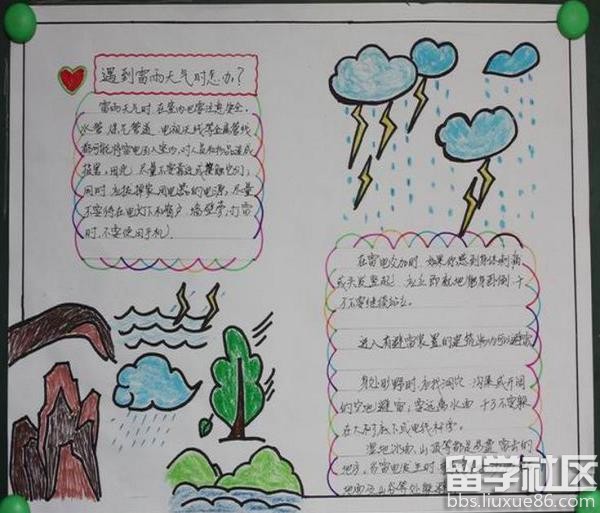 遇到雷雨天气时怎办?
雷雨天气时,在室内也要注意安全,
水管、煤气管道、电视天线等金属管线
都可能将雷电引入室内,对人员和物品造成
损害,因此,尽量不要靠近或接触它们,
同时,应拔掉家用电器的电源,尽量
不要待在电灯下和窗户、墙壁旁,打雷
时,不要使用手机。
在雷电交加时,如果你感到身体刺痛
或头发竖起,应立即就地蹲身卧倒,千
万不要继续站立。
进入有避雷装置的建筑物内可避雷
身处野外,应找洞穴、沟渠或开阔
的空地避雷;要远离水面,千万不要躲
在大树底下或电线杆旁。
湿地水面、山顶等都是易遭雷击的
地方,当雷电发生时
地面及山谷等处躲避
留学社区
bbs.liuxue86.com